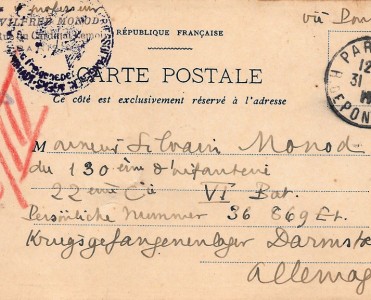 professeur
WILFRED MONOD
viâ
RÉPUBLIQUE FRANÇAISE
CARTE POSTALE
Ce côté est exclusivement réservé à l'adresse
PAR
12
31
Monsieur Silvain Monod
du 130 ème d'infanterie
22ème Cie VI Bat.
Persönliche Nummer 36 869 Et.
Kriegsgefangenenlager Darmst
Allemag